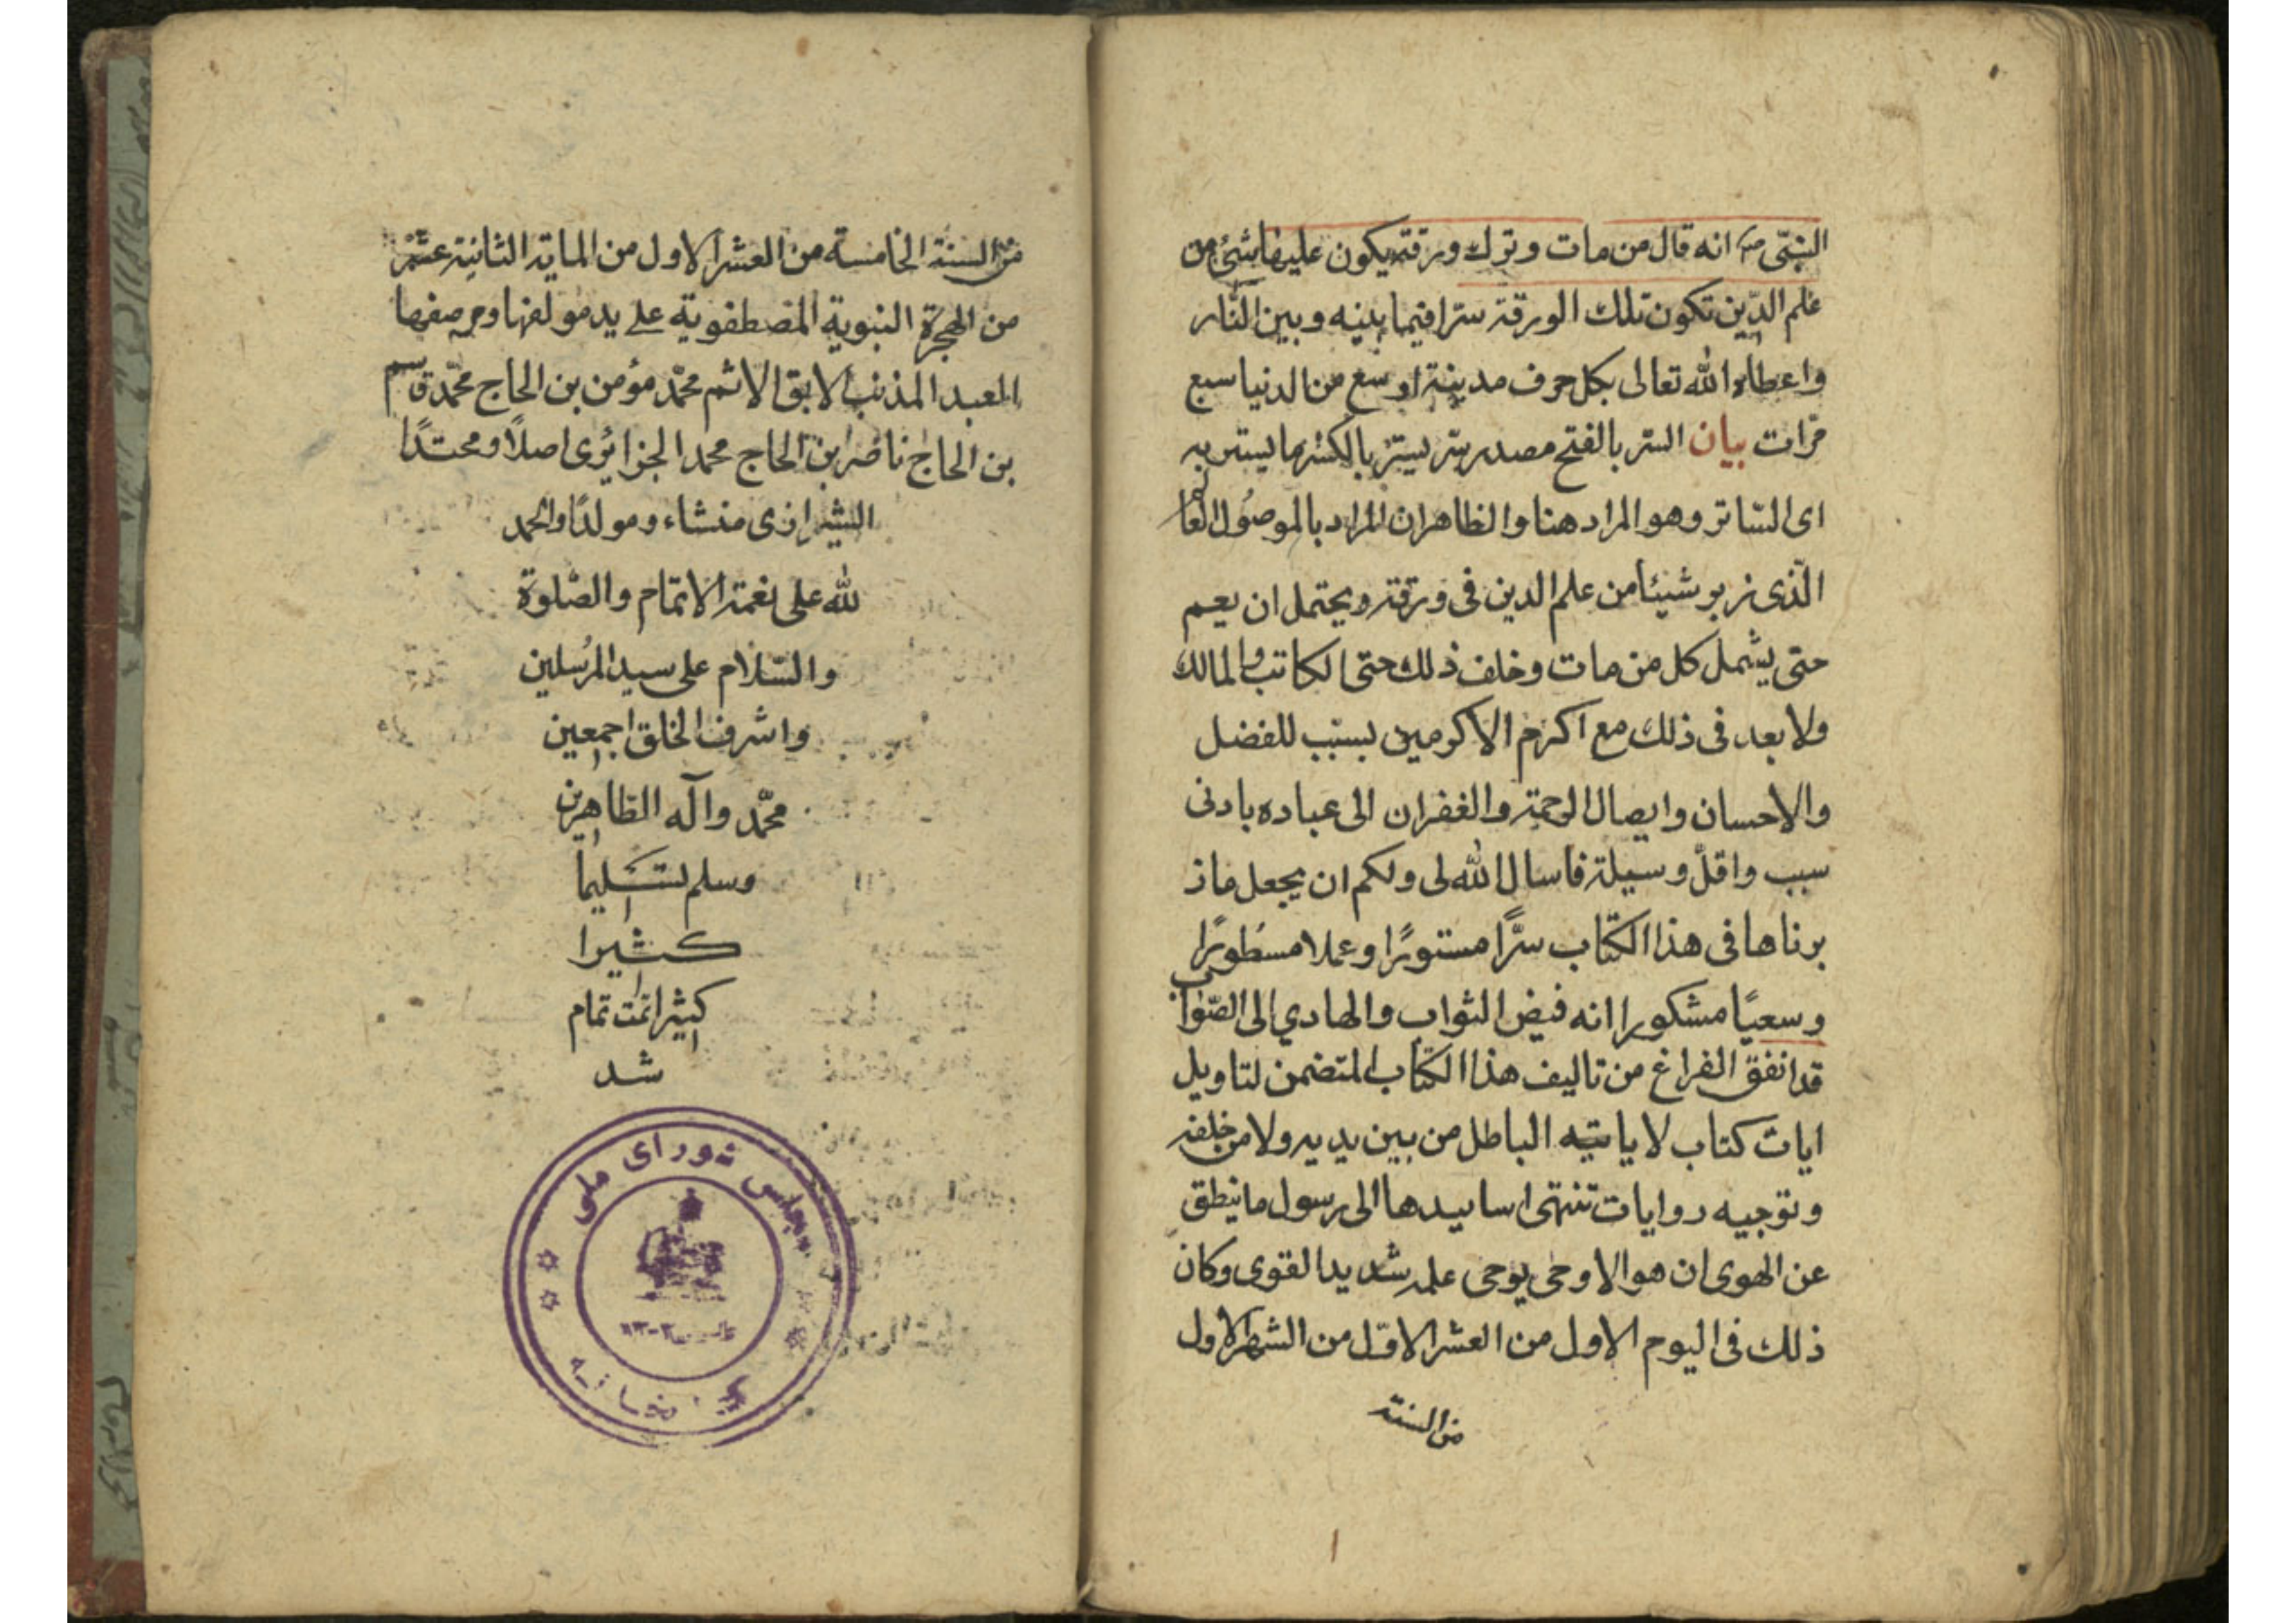 النبّی ص انه قال من مات و ترك ورقة یکون علیها شئ من
علم الدّین تکون تلك الورقة سترا فیما بینه و بین النّار
واعطاه الله تعالی بکل حرف مدینة اوسع من الدنیا سبع
مرات بیان الستر بالفتح مصدر ستر یستر بالکسر ما یستر به
ای الساتر وهو المراد هنا والظاهر ان المراد بالموصُول العالم
الّذی زبر شیئا من علم الدین فی ورقة ویحتمل ان یعم
حتی یشمل کل من مات وخلف ذلك حتی الکاتب والمالك
ولا بعد فی ذلك مع اکرم الاکرمین یسبّب للفضل
والاحسان وایصال الرحمة والغفران الی عباده بادنی
سبب واقلّ وسیلة فاسال الله لی ولکم ان یجعل ما ز
برناها فی هذا الکتاب سرًّا مستورًا وعملا مسطورًا
وسعیًا مشکورا انه فیض الثواب والهادي الی الصّواب
قد اتفق الفراغ من تالیف هذا الکتاب المتضمن لتاویل
ایات کتاب لا یاتیه الباطل من بین یدیه ولا من خلفه
وتوجیه روایات تنتهی اسانیدها الی رسول ما ینطق
عن الهوی ان هو الا وحی یوحی علمه شدید القوی وکان
ذلك فی الیوم الاول من العشر الاوّل من الشهر الاول
من السنة
من السنة الخامسة من العشر الاول من المایة الثانیة عشر
من الهجرة النبویة المصطفویة علی ید مولفها ومرصفها
العبد المذنب الابق الاثم محمّد مؤمن بن الحاج محمّد قاسم
بن الحاج ناصر بن الحاج محمد الجزائری اصلًا ومحتدًا
الشیرازی منشاء ومولدًا والحمد
لله علی نعمة الاتمام والصّلوة
والسّلام علی سید المرُسلین
واشرف الخلق اجمعین
محمّد وآله الطاهرین
وسلم تسلیماً
کثیرا
کثیرا تمّت تمام
شد
مجلس شورای ملی
۱۳۰۲
کتابخانه